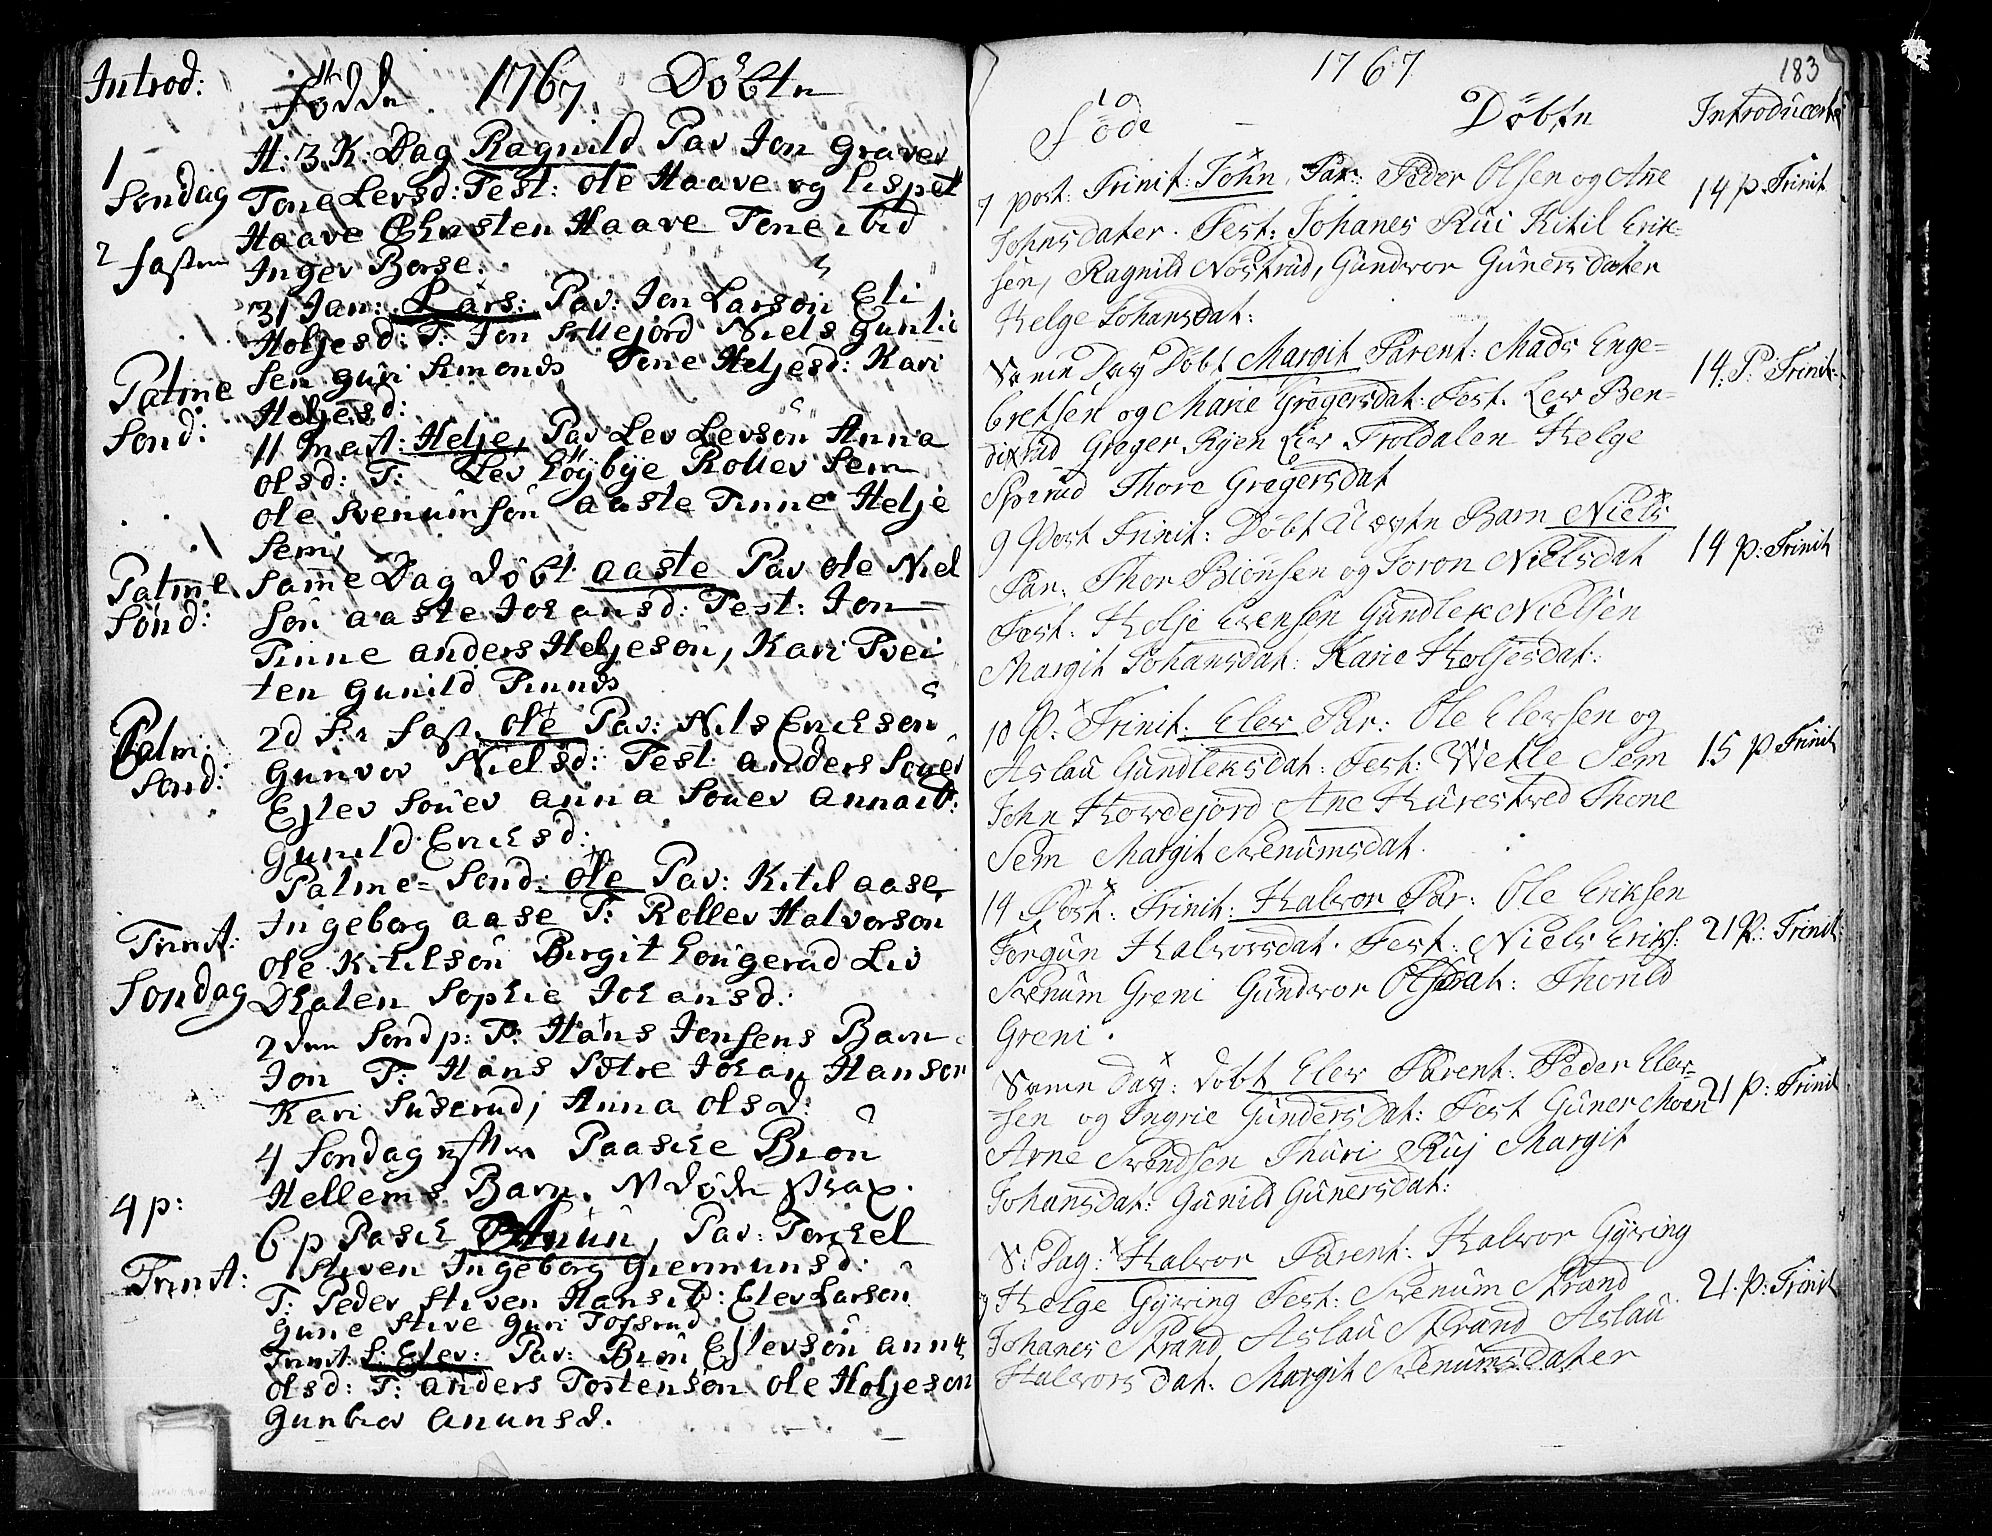 Introd: Fødde 1767. Døbte
H: 3 K: Dag Ragnild Par Jon Graver
1 Søndag Tone Levsd: Test: Ole Haave og Lispet
Haave Christen Haave Tone ibid
2 fasten Inger Borse.
31 Jan: Lars: Par: Jon Larsøn Eli
Holjesd: T: Jon Sillejord Niels Gunli
Palme sen Guri Simonds Tone Heljesd: Kari
Sønd: Heljesd:
11 Mart: Helje, Par Lev Levsøn Anna
Olsd: T: Lev Løÿbÿe Rollev Sem
Ole Svenumsøn Aaste Tinne Helje
Sem
Palme Samme Dag døbt Aaste Par Ole Niel
Sønd: søn Aaste Johansd: Test: Jon
Tinne Anders Heljesøn, Kari Tvei
ten Gunild Tinnes
Palm: 2d S: i fast. Ole Par: Nils Ericksøn
Sønd: Gunvor Nielsd: Test: Anders Souer
Eslev Souer Anna Souer Anna ib:
Gunild Ericksd:
Palme= Sønd: Ole Par: Kitel Aase
Trinit: Ingeborg Aase T: Rollev Halvorsøn
Søndag Ole Kitelsøn Birgit Lougerud Liv
Dhalen Sophie Johansd:
2den Sønd p: T: Hans Jonsens Barn
Jon T: Hans Sætre Johan Hansen
Kari Suserud, Anna Olsd:
4 Søndag efter Paasche Biøn
Hellems Barn. N døde strax.
4 p: 6 p Pasch Anun, Par: Torchel
Trinit: Stiven Ingeborg Giermunsd:
T: Peder Stiven Hans ib: Elev Larsøn
Gune Stive Guri Tofsrud
Trinit: S: Elev: Par: Biøn Eslevsøn Anna
Olsd: T: Anders Tostensøn Ole Holjesøn
Gunhor Anunsd.
1767 183
Føde Døbte Introducerte
7 post: Trinit: John, Par: Peder Olsen og Ane 14 p. Trinit
Johnsdater. Test: Johanes Rui Kitil Erik=
sen, Ragnild Nøstrud, Gundvor Gunersdater
Helge Johansdat:
Samme Dag Døbt Margit Parent: Mads Enge= 14. P: Trinit:
bretsen og Marie Gregersdat: Test. Lev Ben=
dixrud Greger Ryen Lev Troldalen Helge
Spirud Thore Gregersdat
9 Post Trinit: Døbt Uegte Barn Niels 14 p: Trinit
Par: Thor Biønsen og Joron Nielsdat
Test: Holje Evensen Gundlek Nielsen
Margit Johansdat: Karie Holjesdat:
10 P: Trinit: Elev Par: Ole Elevsen og
Aslau Gundleksdat: Test: Wetle Sem 15 p Trinit
John Hovdejord Ane Hurestved Thone
Sem Margit Svenumsdat.
19 Post: Trinit: Halvor Par: Ole Eriksen
Torgun Halvorsdat. Test: Niels Eriks: 21 P: Trinit
Svenum Greni Gundvor Olsdat: Thorild
Greni.
Samme Dag: døbt Elev Parent: Peder Elev=
sen og Ingrie Gundersdat: Test Guner Moen 21 p: Trinit
Arne Svendsen Thuri Ruj Margit
Johansdat: Gunild Gunersdat:
S: Dag: Halvor Parent: Halvor Gyving
Helge Gyving Test: Svenum Strand 21. p: Trinit
Johanes Strand Aslau Strand Aslau
Halvors Dat: Margit Svenumsdater